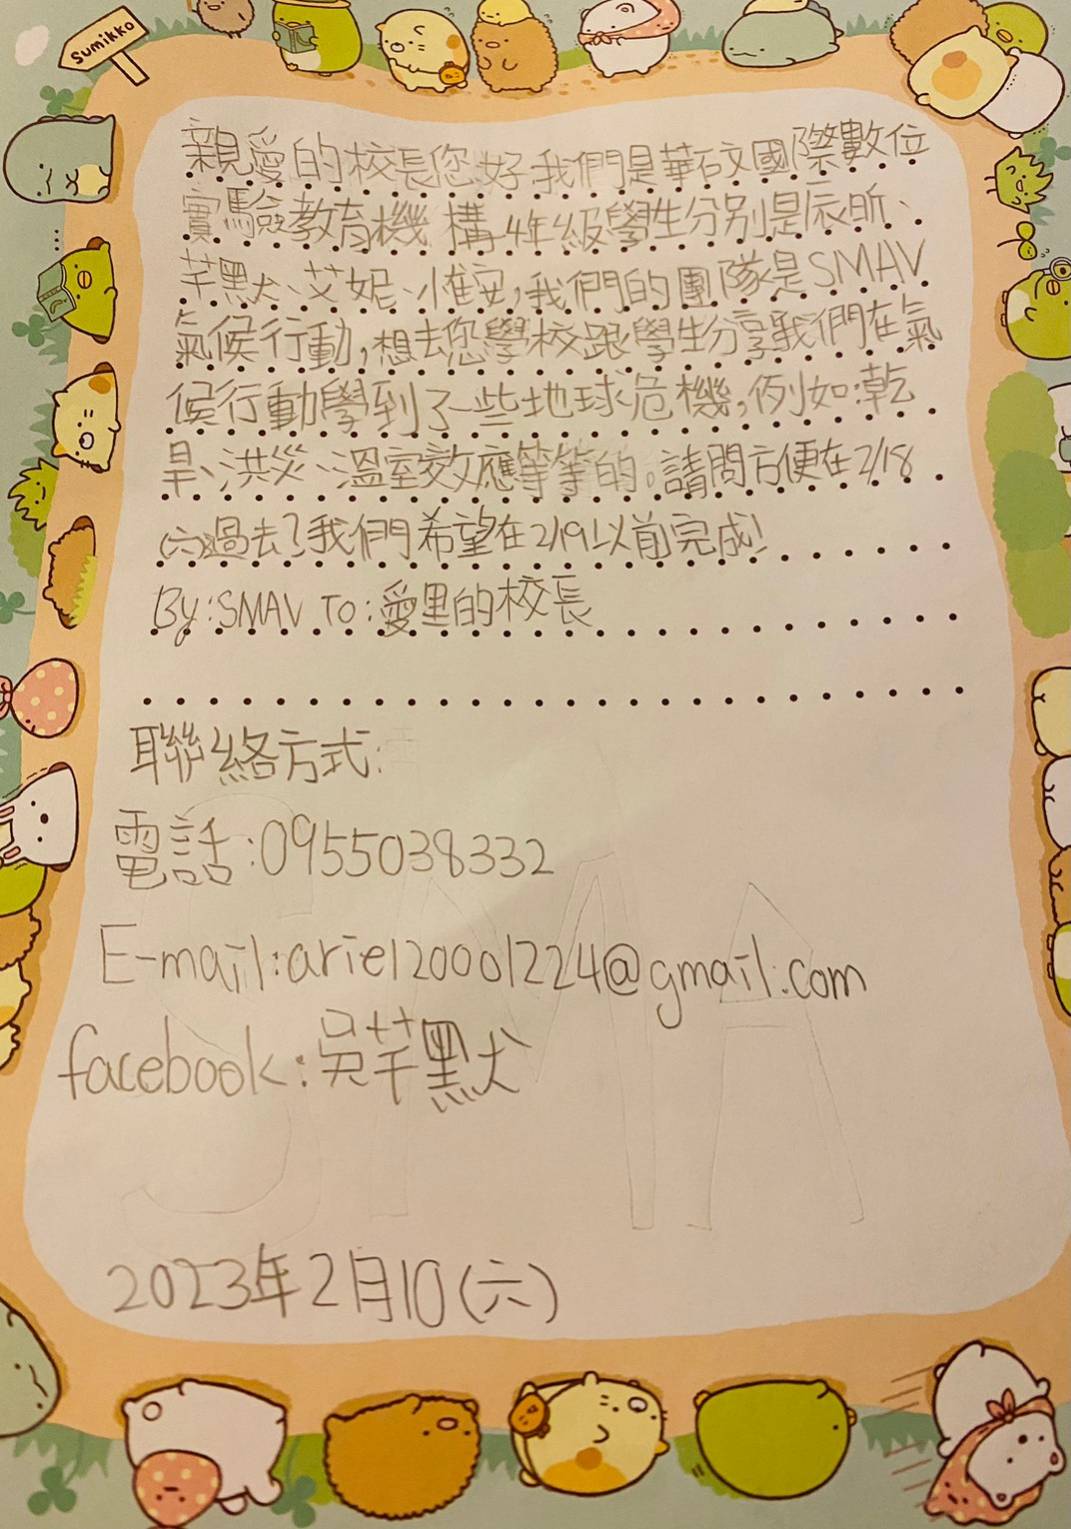 sumikko
親愛的校長您好我們是華砇國際數位
實驗教育機構4年級學生分別是辰昕、
芊默、艾妮、小惟安,我們的團隊是SMAV
氣候行動,想去您學校跟學生分享我們在氣
候行動學到了一些地球危機,例如:乾
旱、洪災、溫室效應等等的。請問方便在2/18
(六)過去?我們希望在2/19以前完成!
By:SMAV To:愛里的校長
聯絡方式:
電話:0955038332
E-mail:ariel20001224@gmail.com
facebook:吳芊默
2023年2月10(六)
SMA